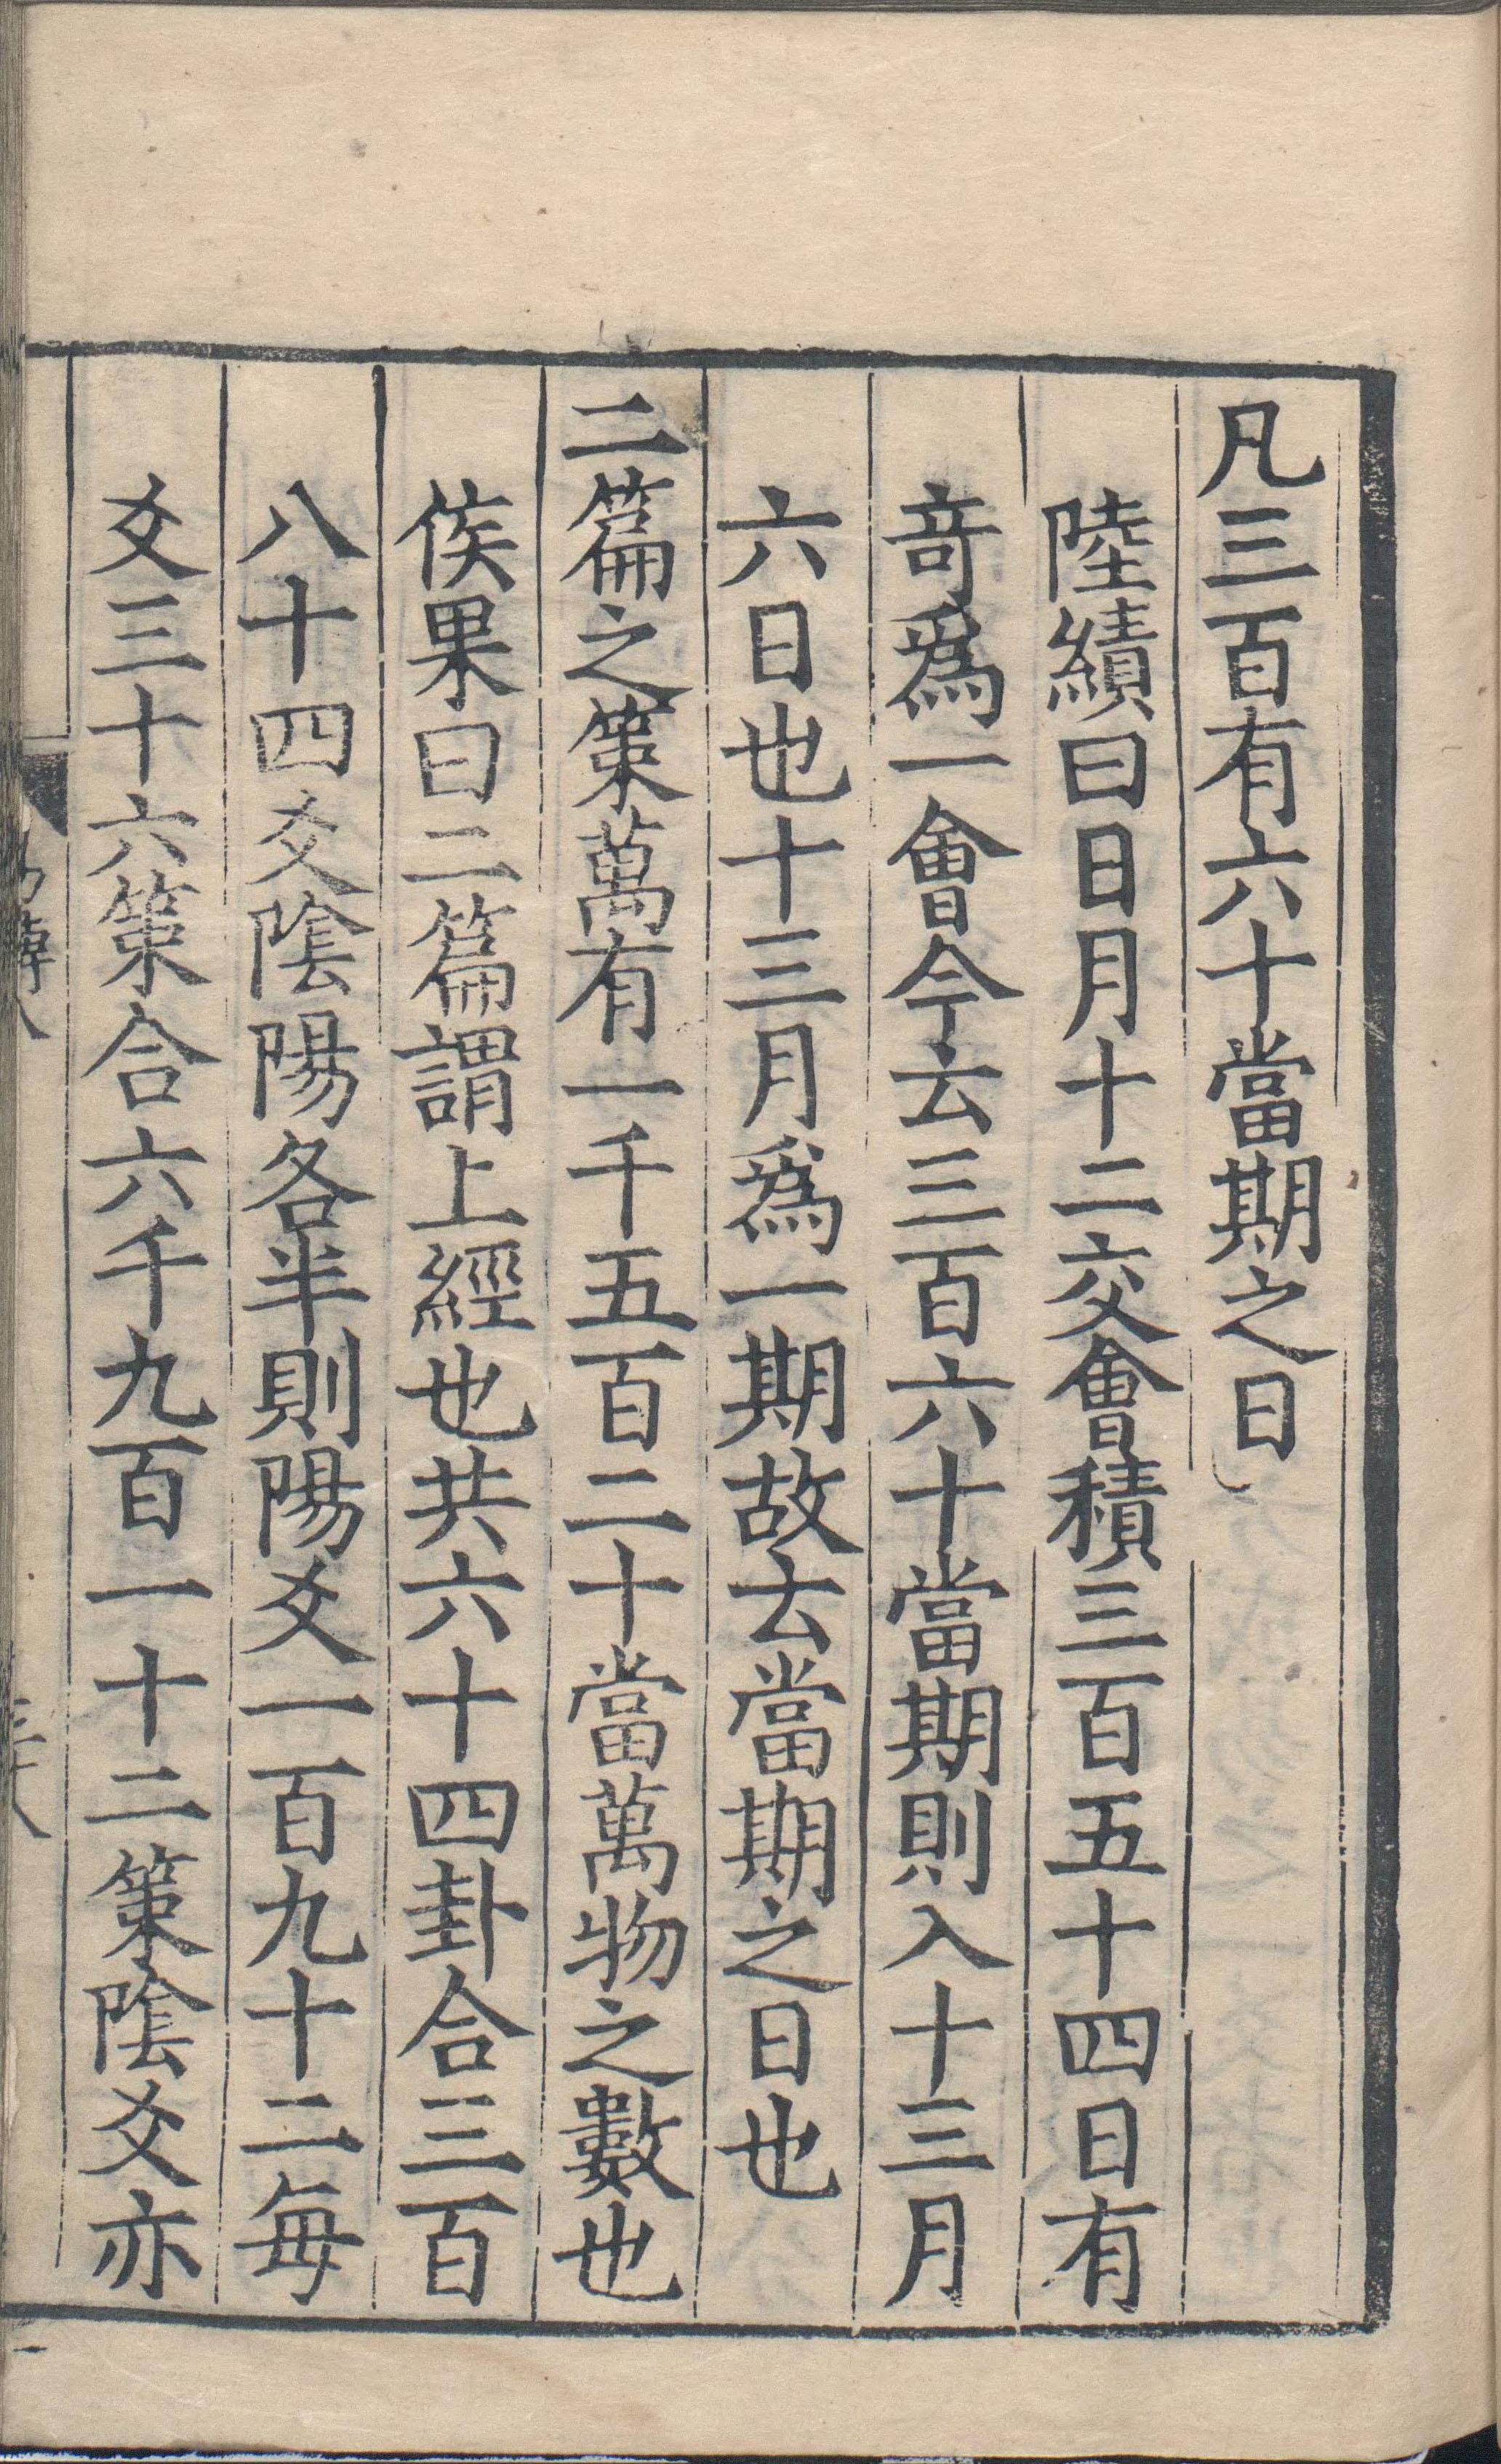 凡三百有六十當期之日
陸績曰日月十二交會積三百五十四日有
竒爲一會今云三百六十當期則入十三月
六日也十三月爲一期故云當期之日也
二篇之策萬有一千五百二十當萬物之數也
侯果曰二篇謂上經也共六十四卦合三百
八十四爻陰陽各半則陽爻一百九十二每
爻三十六策合六千九百一十二策陰爻亦